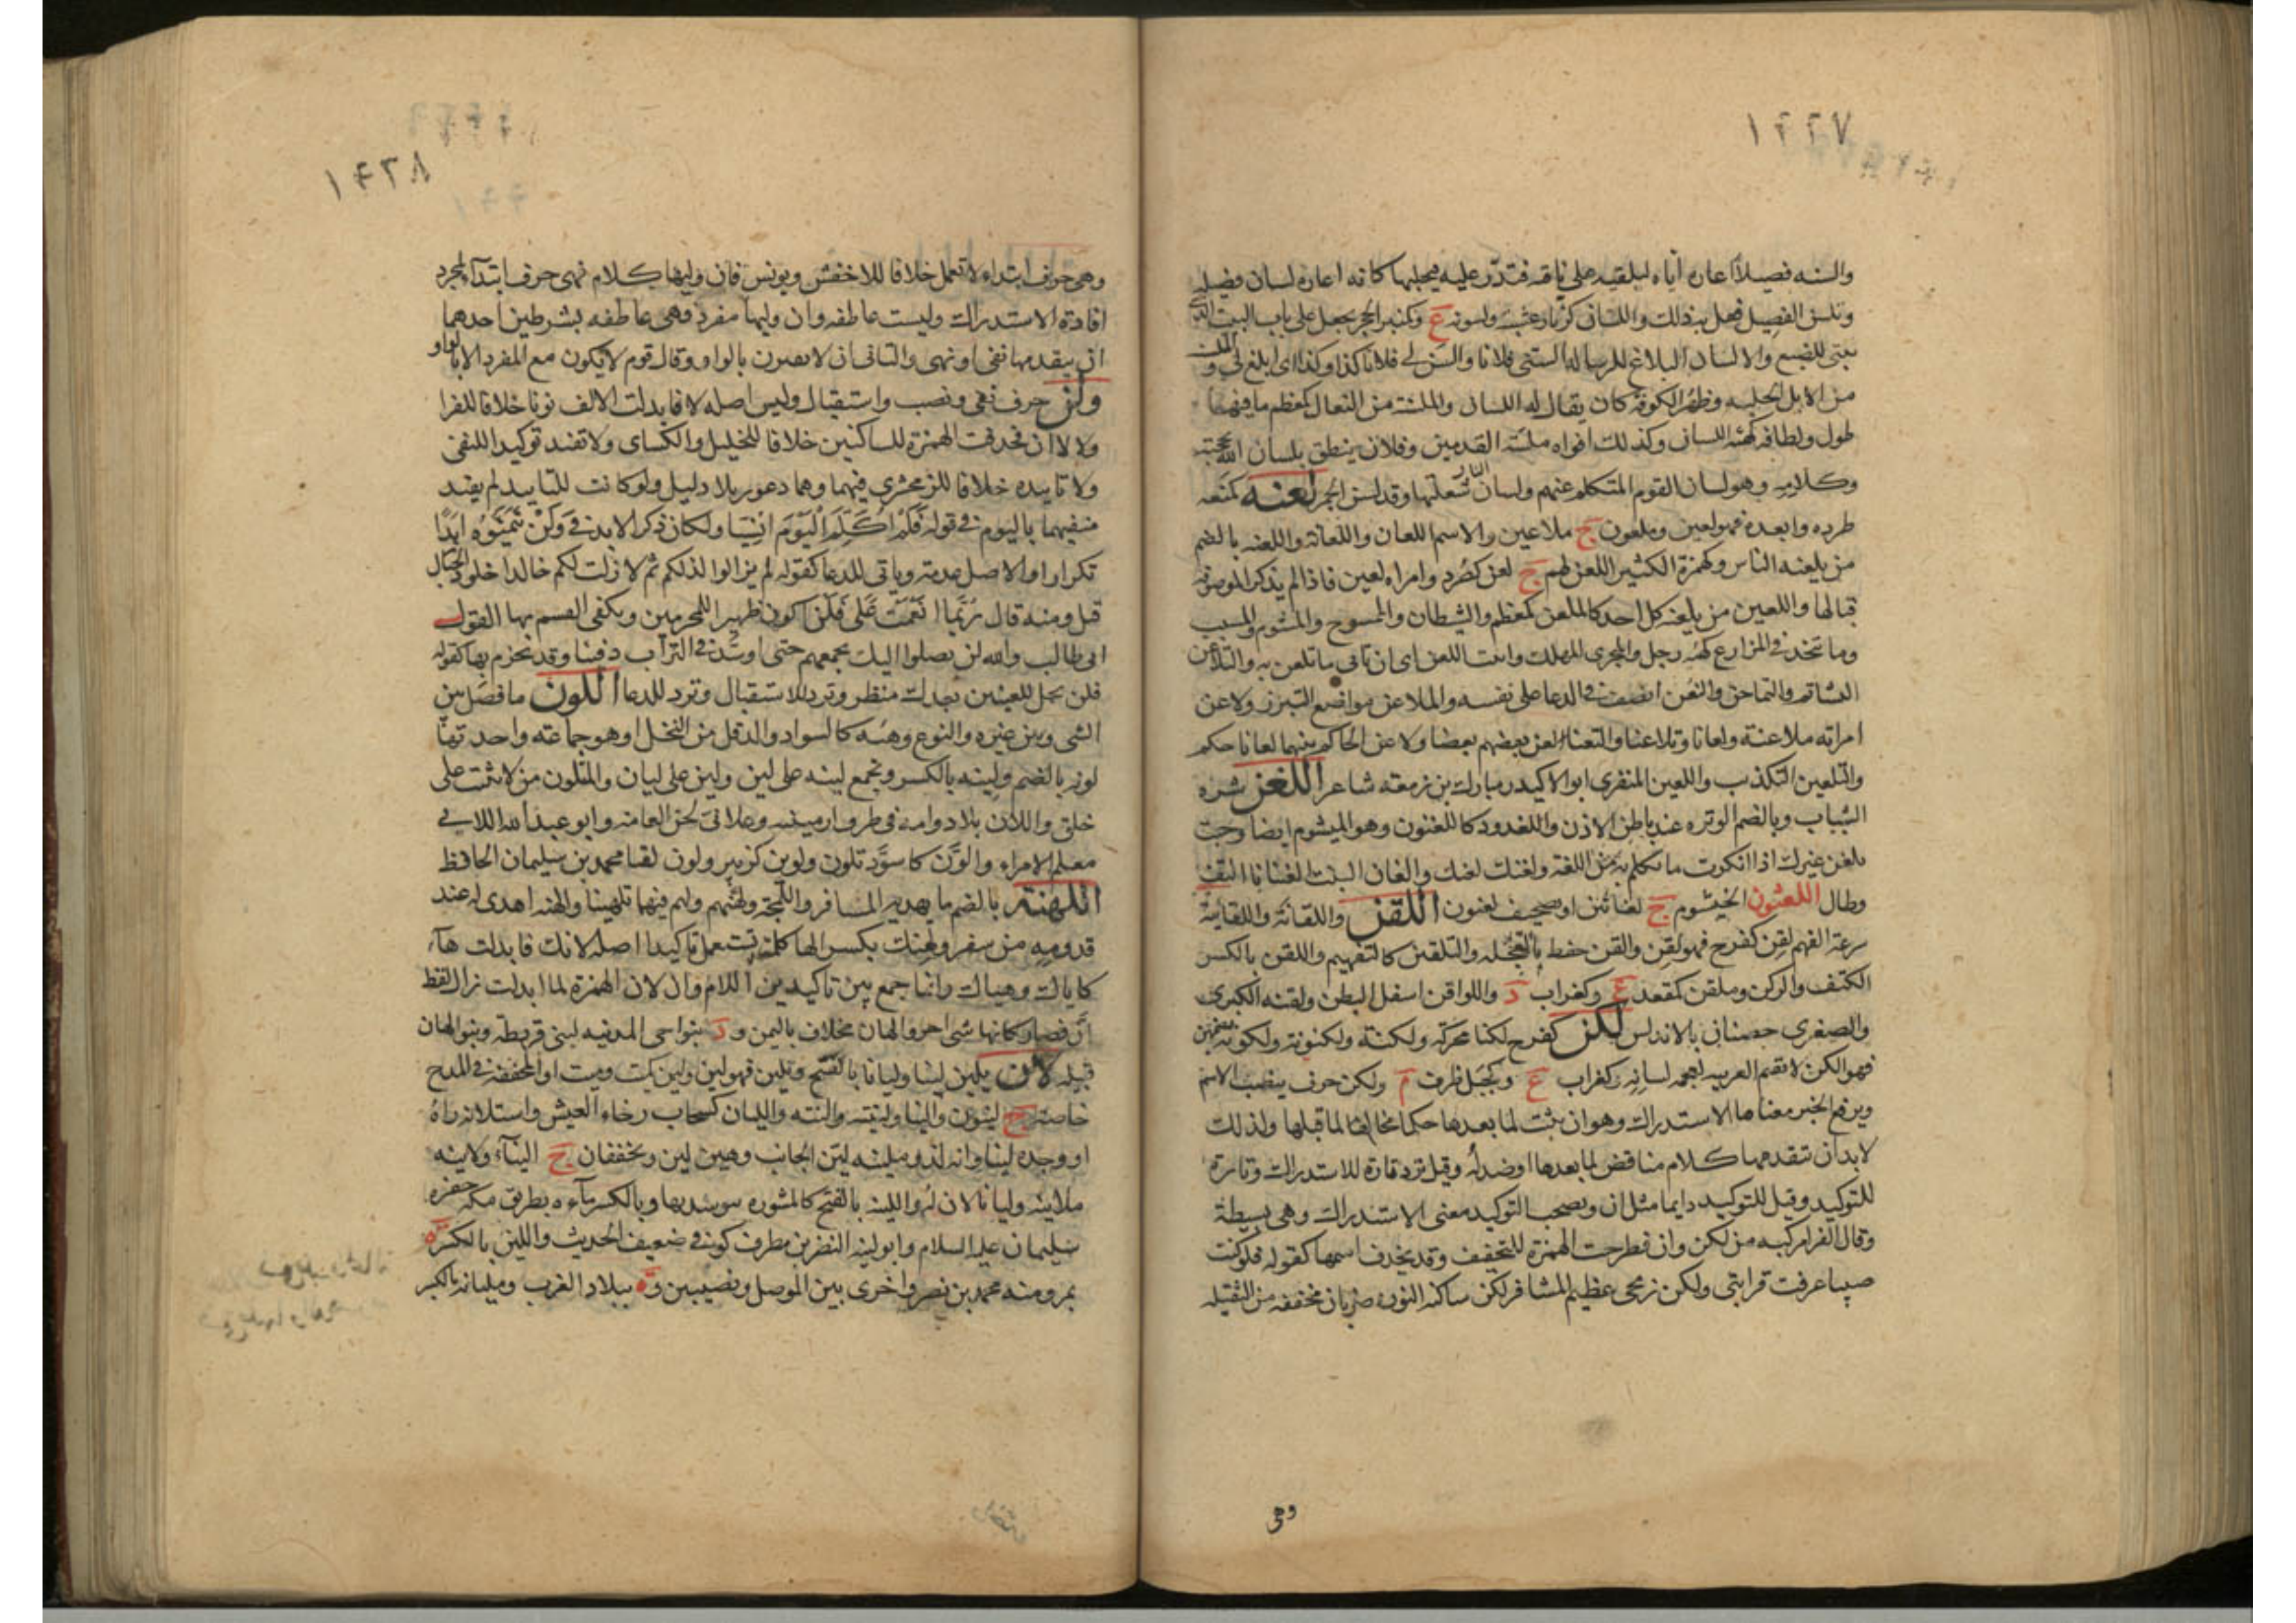 ١٢٢٧
والسنه فصيلا اعاره اياه ليلقيه على ناقه فتدر عليه فيحلبها كانه اعاره لسان فصيله
وتلسن الفصيل فعل به ذلك واللسان كزنار عشبة ولسونه ع وكمنبر الحجر يجعل على باب البيت الذى
يبنى للضبع والالسان البلاغ للرساله السنى فلانا والسن لى فلانا كذا وكذا اى ابلغ لى و
من الابل الحلبه وظهر الكوفه كان يقال له اللسان والملسنة من النعال كمعظم ما فيها
طول ولطافه كهئه اللسان وكذلك افواه ملسنه القدمين وفلان ينطق بلسان الله بحجته
وكلامه وهو لسان القوم المتكلم عنهم ولسان النار شعلتها وقد لسن الجمر لعنه كمنعه
طرده وابعده فهو لعين وملعون ج ملاعين والاسم اللعان واللعانة واللعنه بالضم
من يلعنه الناس وكهمزة الكثير اللعن لهم ج لعن كصرد وامراه لعين فاذا لم يذكر الموصوفه
فبالها واللعين من يلعنه كل احد كالملعن كمعظم والشيطان والممسوخ والمشوم والمسبب
وما يتخذ فى المزارع كهئه رجل والمجرى المهلك وابيت اللعن اى ان تاتى ما تلعن به والتلاعن
التشاتم والتماحن والتعن انصف فى الدعا على نفسه والملاعن مواضع التبرز ولاعن
امراته ملاعنة ولعانا وتلاعنا والتعنا لعن بعضهم بعضا ولاعن الحاكم بينهما لعانا حكم
والتلعين التكذيب واللعين المنقرى ابو الاكيدر مبارك بن زمعه شاعر اللغن شره
الشباب وبالضم الوتره عند باطن الاذن واللغدود كاللغنون وهو الخيشوم ايضا وجئت
بلغن غيرك اذا انكرت ما تكلم به من اللغة ولغنك لغنك والغان النبت الغنانا التف
وطال اللغثون الخيشوم ج لغاثين او تصحيف لغنون اللقن واللقانة واللقانية
سرعة الفهم لقن كفرح فهو لقن والقن حفظ بالعجله والتلقين كالتفهيم واللقن بالكسر
الكنف والركن وملقن كمقعد ع وكغراب د واللواقن اسفل البطن ولقنه الكبرى
والصغرى حصنان بالاندلس لكن كفرح لكنا محركه ولكنة ولكنونة ولكونة بضمهن
فهو الكن لا يقيم العربيه لعجمه لسانه وكغراب ع وكجبل ظرف م ولكن حرف ينصب الاسم
ويرفع الخبر معناها الاستدراك وهو ان يثبت لما بعدها حكما مخالفا لما قبلها ولذلك
لابد ان يتقدمها كلام مناقض لما بعدها او ضد له وقيل ترد تارة للاستدراك وتارة
للتوكيد وقيل للتوكيد دايما مثل ان ويصحب التوكيد معنى الاستدراك وهى بسيطة
وقال الفرا مركبه من لكن وان فطرحت الهمزة للتخفيف وقد يحذف اسمها كقوله فلو كنت
ضبيا عرفت قرابتى ولكن زنجى عظيم المشافر لكن ساكنه النون ضربان مخففه من الثقيله
وهى
١٢٢٨
وهى حرف ابتداء لا تعمل خلافا للاخفش ويونس فان وليها كلام فهى حرف ابتدآء لمجرد
افادة الاستدراك وليست عاطفه وان وليها مفرد فهى عاطفه بشرطين احدهما
ان يتقدمها نفى او نهى والثانى ان لا تقترن بالواو وقال قوم لا يكون مع المفرد الا بالواو
ولن حرف نفى ونصب واستقبال وليس اصله لا فابدلت الالف نونا خلافا للفرا
ولا لا ان فحذفت الهمزة للساكنين خلافا للخليل والكساى ولا تفيد توكيد النفى
ولا تاييده خلافا للزمخشرى فيهما وهما دعوى بلا دليل ولو كانت للتاييد لم يقيد
منفيها باليوم فى قوله فلن اكلم اليوم انسيا ولكان ذكر الابد فى ولن يتمنوه ابدا
تكرارا والاصل عدمه وياتى للدعا كقوله لم يزالوا لذلكم ثم لا زلت لكم خالدا خلود الجبال
قيل ومنه قال رب بما انعمت على فلن اكون ظهيرا للمجرمين ويلقى القسم بها كقول
ابى طالب والله لن يصلوا اليك بجمعهم حتى اوسد فى التراب دفينا وقد يجزم بها كقوله
فلن يحل للعينين بعدك منظر وترد للاستقبال وترد للدعا اللون ما فصل بين
الشى وبين غيره والنوع وهئه كالسواد والدقل من النخل او هو جماعه واحدتها
لونه بالضم ولينه بالكسر وتجمع لينه على لين ولين على ليان والمتلون من لا يثبت على
خلق واللان بلاد وامه فى طرف ارمينيه وعلان لحن العامه وابو عبد الله اللانى
معلم الامراء والون كاسود تلون ولوين كزبير ولون لقبا محمد بن سليمان الحافظ
اللهنة بالضم ما يهديه المسافر واللمجة ولهنهم ولهم فيهما تلهينا والهنه اهدى له عند
قدومه من سفر ولهنك بكسر الها كلمة تستعمل تاكيدا اصله لانك فابدلت هآء
كاياك وهياك وانما جمع بين تاكيدين اللام وان لان الهمزة لما ابدلت زال لفظ
ان فصار كانها شى اخر والهان مخلاف باليمن و د بنواحى المدينه لبنى قريظه وبنو الهان
قبيله لان يلين لينا وليانا بالفتح وتلين فهو لين ولين كميت وميت او المخففه فى المدح
خاصة ج لينون واليناء ولينته والنته والليان كسحاب رخاء العيش واستلانه راه
او وجده لينا وانه لذو ملينه لين الجانب وهين لين ويخففان ج اليناء ولاينه
ملاينه وليانا لان له واللينه بالفتح كالمسوره يتوسد بها وبالكسر مآءه بطريق مكه حفره
سليمان عليه السلام وابو لينه النضر بن مطرف كوفى ضعيف الحديث واللين بالكسر ه
بمرو منه محمد بن نصر واخرى بين الموصل ونصيبين وه ببلاد الغرب ومليانه بالكسر